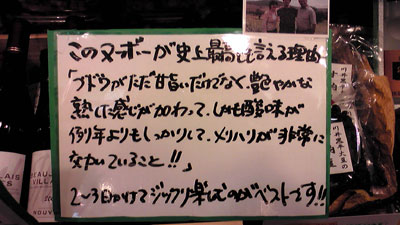 このヌーボーが史上最高と言える理由
「ブドウがただ甘いだけでなく、艶やかな
熟した感じが加わって、しかも酸味が
例年よりもしっかりして、メリハリが非常に
効いていること!!」
2〜3日かけてジックリ楽しむのがベストです!!
BEAUJOLAIS
VILLAGES